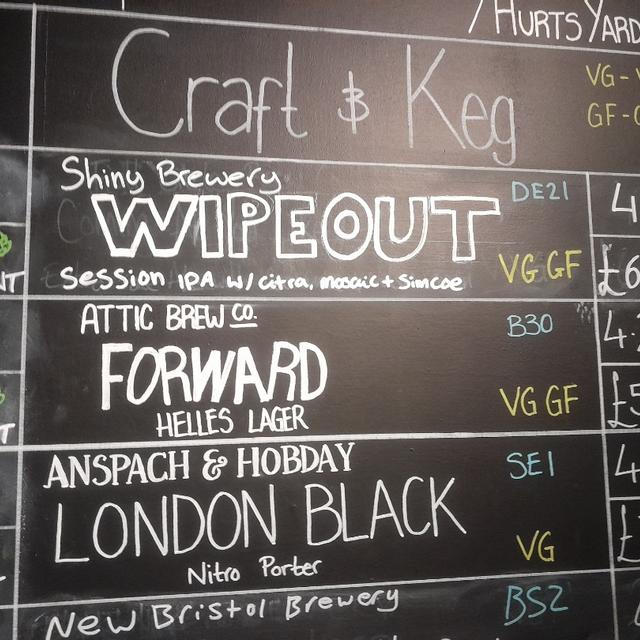 /HURTS YARD
Craft & Keg
VG -
GF -
Shiny Brewery
DE21
WIPEOUT
VG GF
Session IPA w/ citra, mosaic + Simcoe
£6
ATTIC BREW CO.
B30
FORWARD
VG GF
HELLES LAGER
£5
ANSPACH & HOBDAY
SE1
LONDON BLACK
VG
Nitro Porter
New Bristol Brewery
BS2